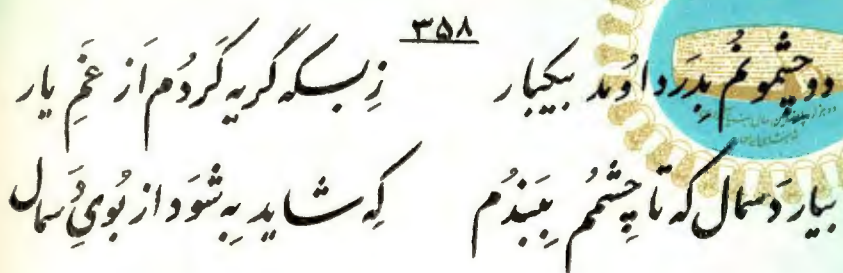 ۳۵۸
دو چشمونُم بِدَرد اومد بیکبار زِبسکه گریه کَردُم اَز غَمِ یار
بیار دَسمال که تا چِشمُم بِبَندُم کِه شاید بِه شَوَد از بُویِ دَسمال